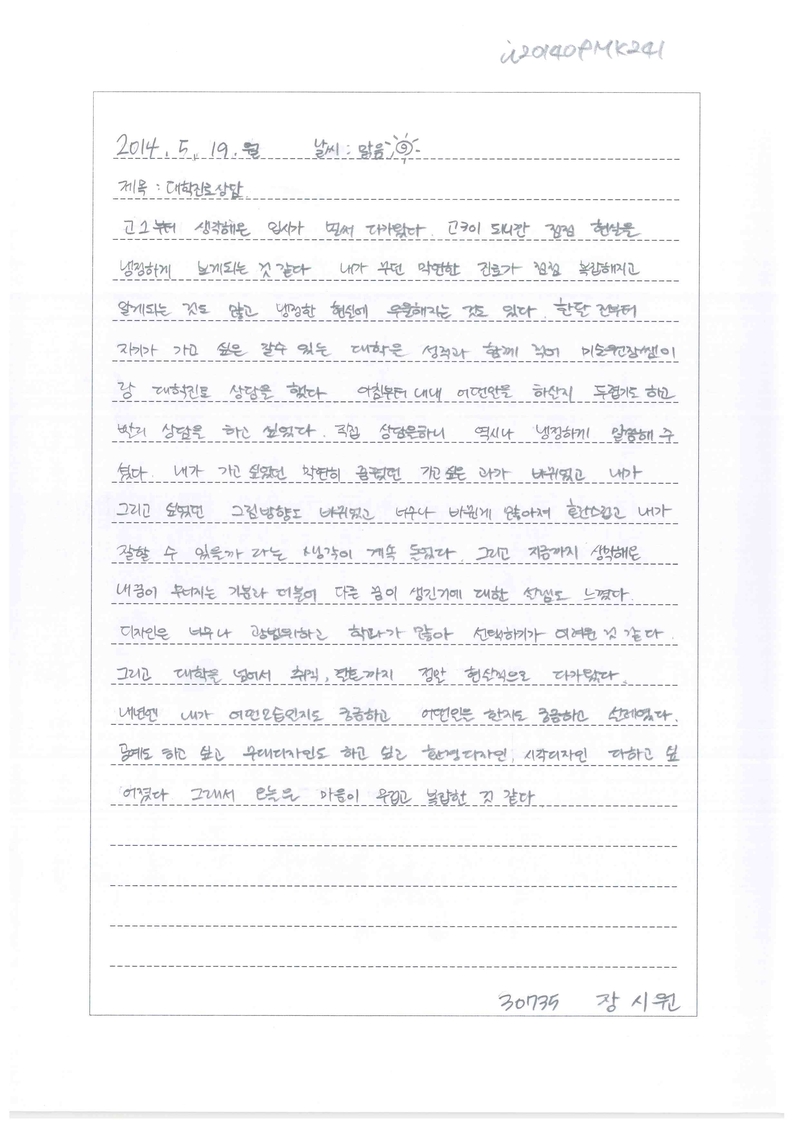 i20140PMK241
2014. 5. 19. 월 날씨 : 맑음
제목 : 대학진로상담
고1부터 생각해온 입시가 벌써 다가왔다. 고3이 되니깐 점점 현실을
냉정하게 보게되는 것 같다 내가 꾸던 막연한 진로가 점점 복잡해지고
알게되는 것도 많고 냉정한 현실에 우울해지는 것도 있다. 한달 전부터
자기가 가고 싶은 갈수 있는 대학을 성적과 함께 적어 미술원장쌤이
랑 대학진로 상담을 했다 아침부터 내내 어떤말을 하실지 두렵기도 하고
빨리 상담을 하고 싶었다. 직접 상담을하니 역시나 냉정하게 말씀해 주
셨다. 내가 가고 싶었던 막연히 꿈꿨던 가고싶은 과가 바뀌었고 내가
그리고 싶었던 그림방향도 바뀌었고 너무나 바뀐게 많아져 혼란스럽고 내가
잘할 수 있을까 라는 생각이 계속 들었다. 그리고 지금까지 생각해온
내꿈이 무너지는 기분과 더불어 다른 꿈이 생긴거에 대한 설렘도 느꼈다.
디자인은 너무나 광범위하고 학과가 많아 선택하기가 어려운 것 같다.
그리고 대학을 넘어서 취직, 까지 정말 현실적으로 다가왔다.
내년엔 내가 어떤모습인지도 궁금하고 어떤일은 할지도 궁금하고 설레였다.
공예도 하고 싶고 무대디자인도 하고 싶고 환경디자인, 시각디자인 다하고 싶
어졌다 그래서 오늘은 마음이 무겁고 복잡한 것 같다
30735 장시원